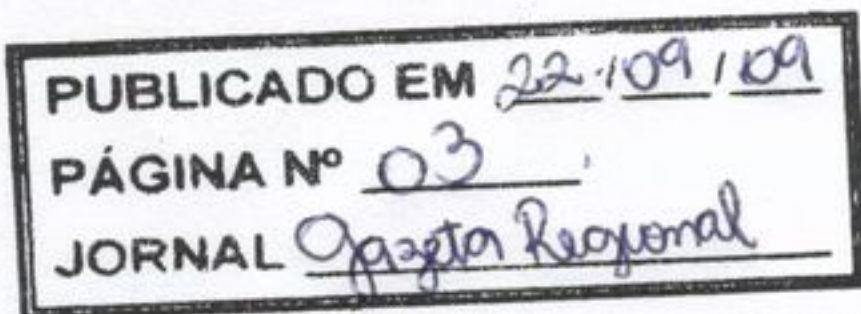 PUBLICADO EM 22/09/09
PÁGINA Nº 03
JORNAL Gazeta Regional